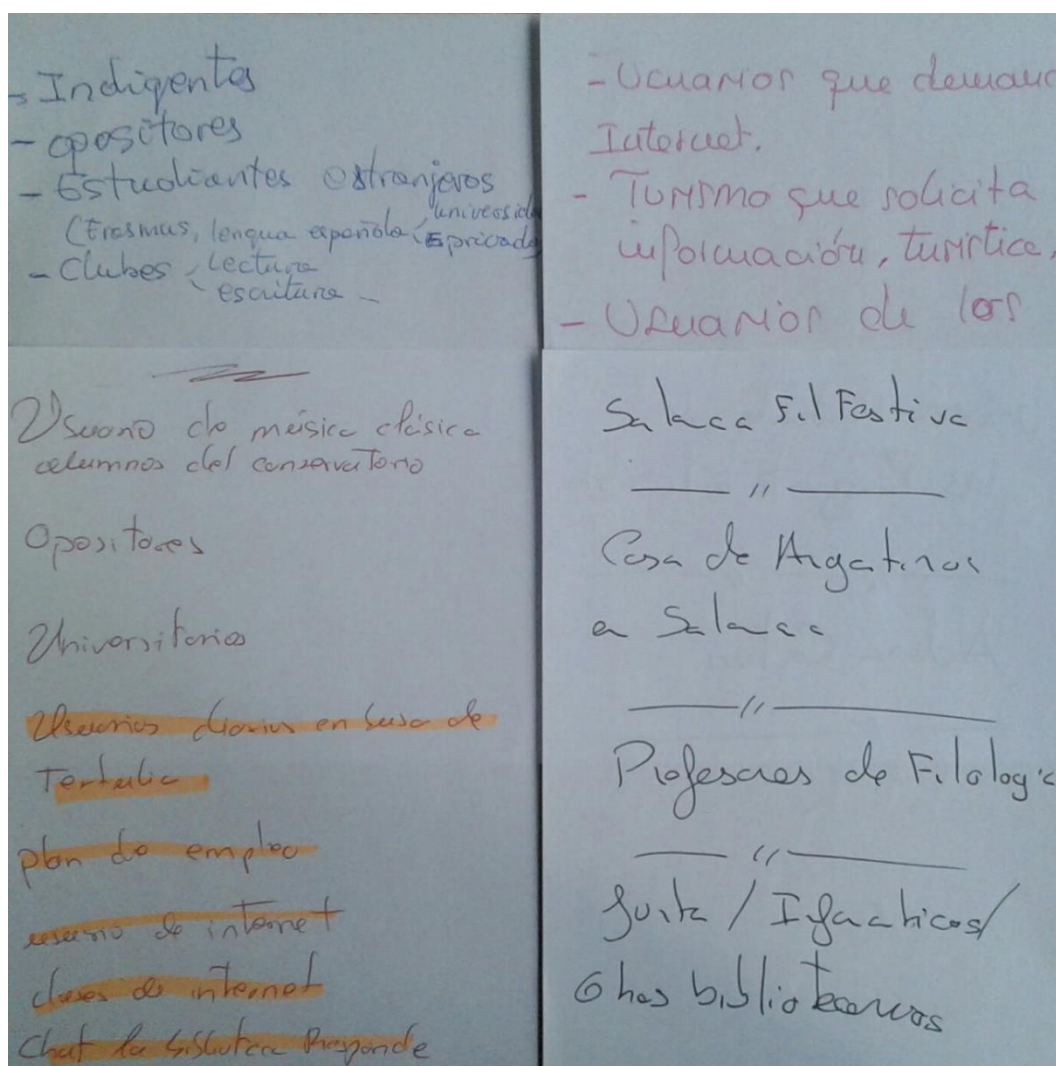 - Indigentes
- opositores
- Estudiantes extranjeros
(Erasmus, lengua española, universida
privada
- Clubes lectura
escritura
- Usuarios que demand
Internet.
- Turismo que solicita
información, turística,
- Usuarios de los
Usuario de música clásica
alumnos del conservatorio
Opositores
Universitarios
Usuarios diarios en busca de
Tertulia
plan de empleo
usuario de internet
clases de internet
Chat la biblioteca Responde
Salaca Fil Festiva
Casa de Argentinos
en Salaca
Profesores de Filologia
Junta / Informáticos /
Otros bibliotecarios